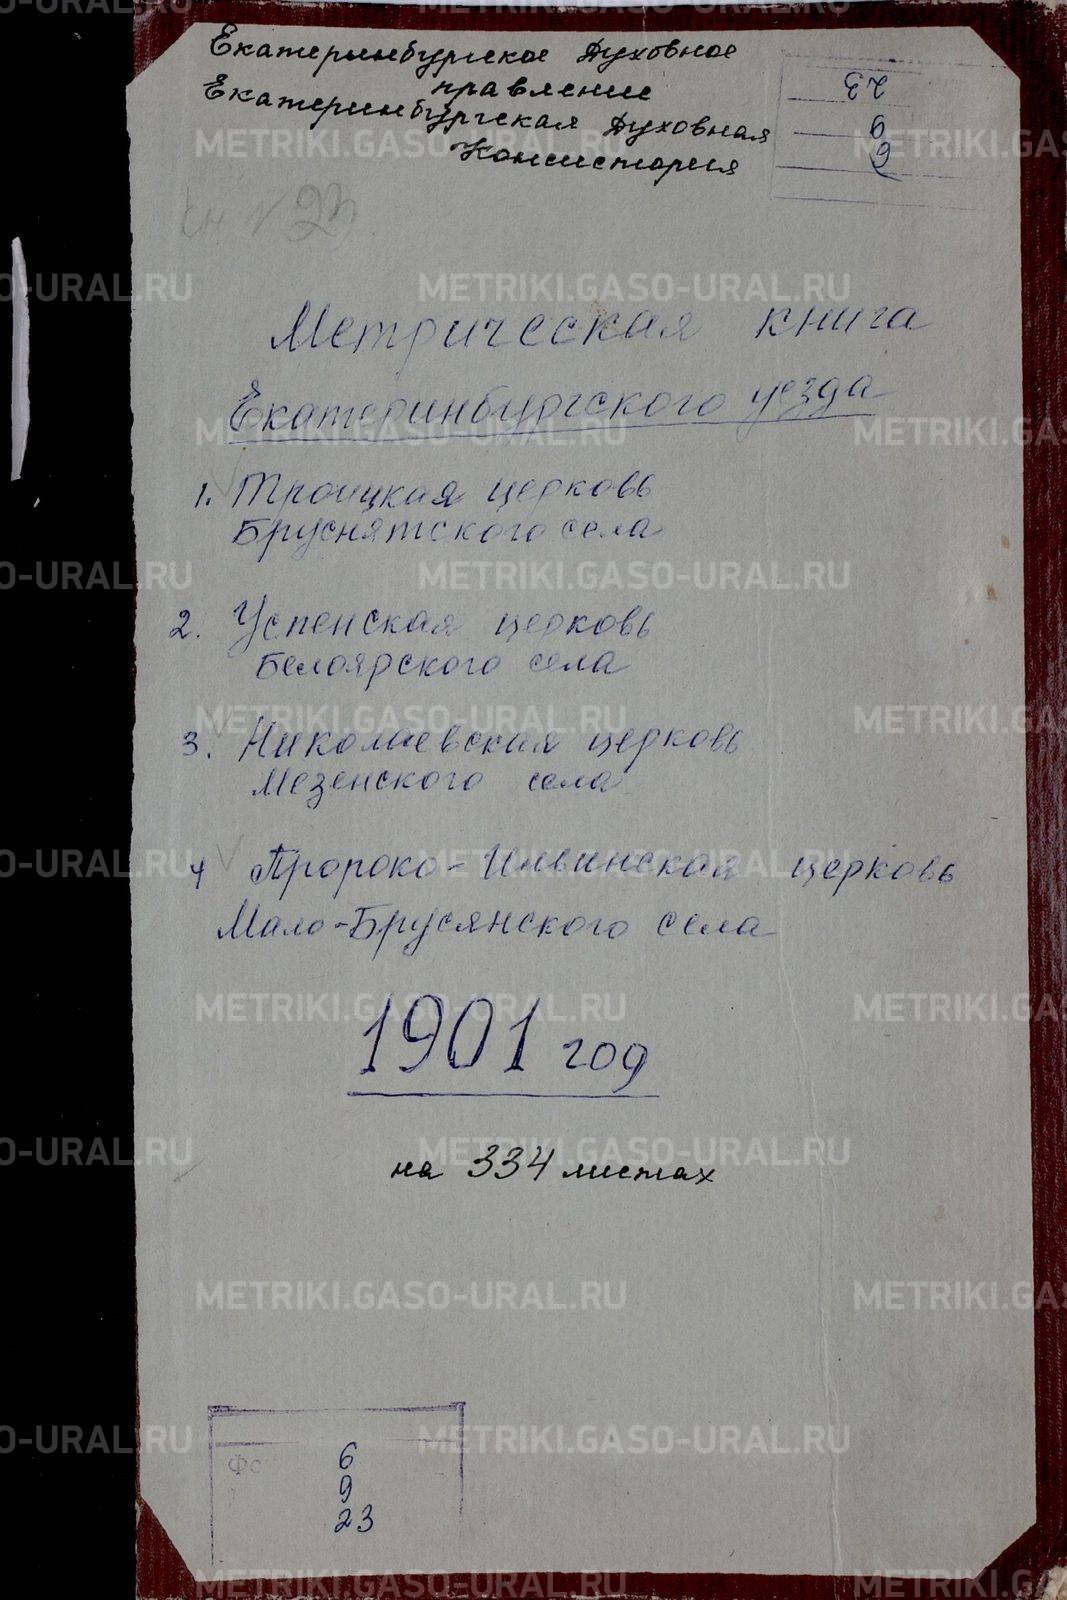 Екатеринбургское Духовное
правление
Екатеринбургская Духовная
Консистория
23
9
6
кн № 23
Метрическая книга
Екатеринбургского уезда
1. Троицкая церковь
Бруснятского села
2. Успенская церковь
Белоярского села
3. Николаевская церковь
Мезенского села
4 Пророко-Ильинская церковь
Мало-Брусянского села
1901 год
на 334 листах
Фо
6
9
23
METRIKI.GASO-URAL.RU